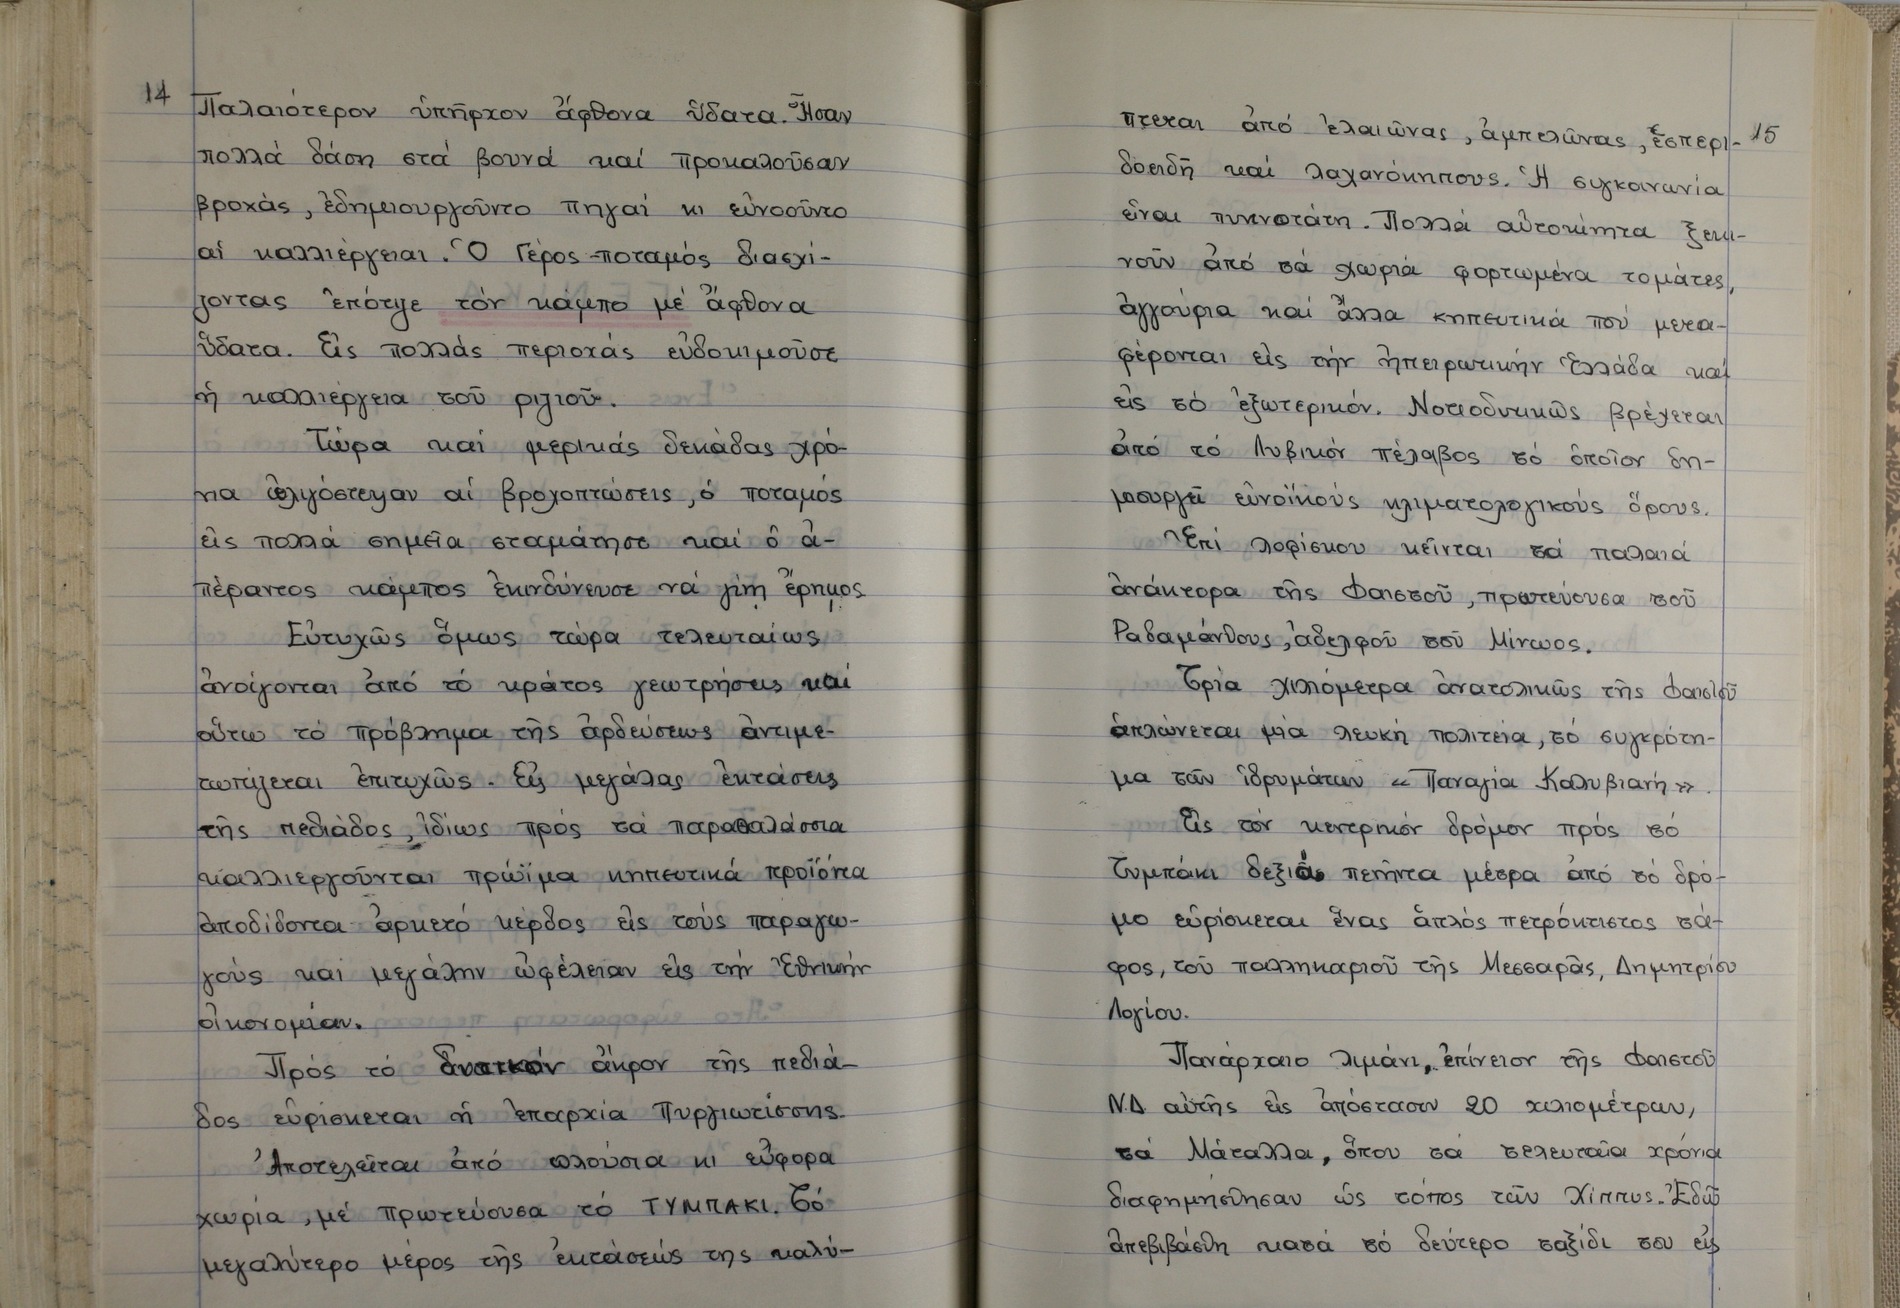 14
Παλαιότερον ὑπῆρχον ἄφθονα ὕδατα. Ἦσαν
πολλά δάση στά βουνά καί προκαλοῦσαν
βροχάς, ἐδημιουργοῦντο πηγαί κι εὐνοοῦντο
αἱ καλλιέργειαι. Ὁ Γέρος-ποταμός διασχί-
ζοντας ἐπότιζε τόν κάμπο μέ ἄφθονα
ὕδατα. Εἰς πολλάς περιοχάς εὐδοκιμοῦσε
ἡ καλλιέργεια τοῦ ρυζιοῦ.
Τώρα καί μερικάς δεκάδας χρό-
νια ὀλιγόστεψαν αἱ βροχοπτώσεις, ὁ ποταμός
εἰς πολλά σημεῖα σταμάτησε καί ὁ ἀ-
πέραντος κάμπος ἐκινδύνευσε νά γίνῃ ἔρημος.
Εὐτυχῶς ὅμως τώρα τελευταίως
ἀνοίγονται ἀπό τό κράτος γεωτρήσεις καί
οὕτω τό πρόβλημα τῆς ἀρδεύσεως ἀντιμε-
τωπίζεται ἐπιτυχῶς. Εἰς μεγάλας ἐκτάσεις
τῆς πεδιάδος, ἰδίως πρός τά παραθαλάσσια
καλλιεργοῦνται πρώϊμα κηπευτικά προϊόντα
ἀποδίδοντα ἀρκετό κέρδος εἰς τούς παραγω-
γούς και μεγάλην ὠφέλειαν εἰς τήν Ἐθνικήν
οἰκονομίαν.
Πρός τό δυτικόν ἄκρον τῆς πεδιά-
δος εὑρίσκεται ἡ ἐπαρχία Πυργιωτίσσης.
Ἀποτελεῖται ἀπό πλούσια κι εὔφορα
χωρία, μέ πρωτεύουσα τό ΤΥΜΠΑΚΙ. Τό
μεγαλύτερο μέρος τῆς ἐκτάσεώς της καλύ-
15
πτεται ἀπό ἐλαιῶνας, ἀμπελῶνας, ἑσπερι-
δοειδῆ καί λαχανόκηπους. Ἡ συγκοινωνία
εἶναι πυκνοτάτη. Πολλά αὐτοκίνητα ξεκι-
νοῦν ἀπό τά χωριά φορτωμένα τομάτες,
ἀγγούρια καί ἄλλα κηπευτικά πού μετα-
φέρονται εἰς τήν ἠπειρωτικήν Ἑλλάδα καί
εἰς τό ἐξωτερικόν. Νοτιοδυτικῶς βρέχεται
ἀπό τό Λυβικόν πέλαγος τό ὁποῖον δη-
μιουργεῖ εὐνοϊκούς κλιματολογικούς ὅρους.
Ἐπί λοφίσκου κεῖνται τά παλαιά
ἀνάκτορα τῆς Φαιστοῦ, πρωτεύουσα τοῦ
Ραδαμάνθους, ἀδελφοῦ τοῦ Μίνωος.
Τρία χιλιόμετρα ἀνατολικῶς τῆς Φαιστοῦ
ἁπλώνεται μία λευκή πολιτεία, τό συγκρότη-
μα τῶν ἱδρυμάτων « Παναγία Καλυβιανή ».
Εἰς τόν κεντρικόν δρόμον πρός τό
Τυμπάκι δεξιά πενήντα μέτρα ἀπό τό δρό-
μο εὑρίσκεται ἕνας ἁπλός πετρόκτιστος τά-
φος, τοῦ παλληκαριοῦ τῆς Μεσσαρᾶς, Δημητρίου
Λογίου.
Πανάρχαιο λιμάνι, ἐπίνειον τῆς Φαιστοῦ
Ν.Δ αὐτῆς εἰς ἀπόστασιν 20 χιλιομέτρων,
τά Μάταλλα, ὅπου τά τελευταῖα χρόνια
διαφημήσθησαν ὡς τόπος τῶν Χίππυς. Ἐδῶ
ἀπεβιβάσθη κατά τό δεύτερο ταξίδι του εἰς